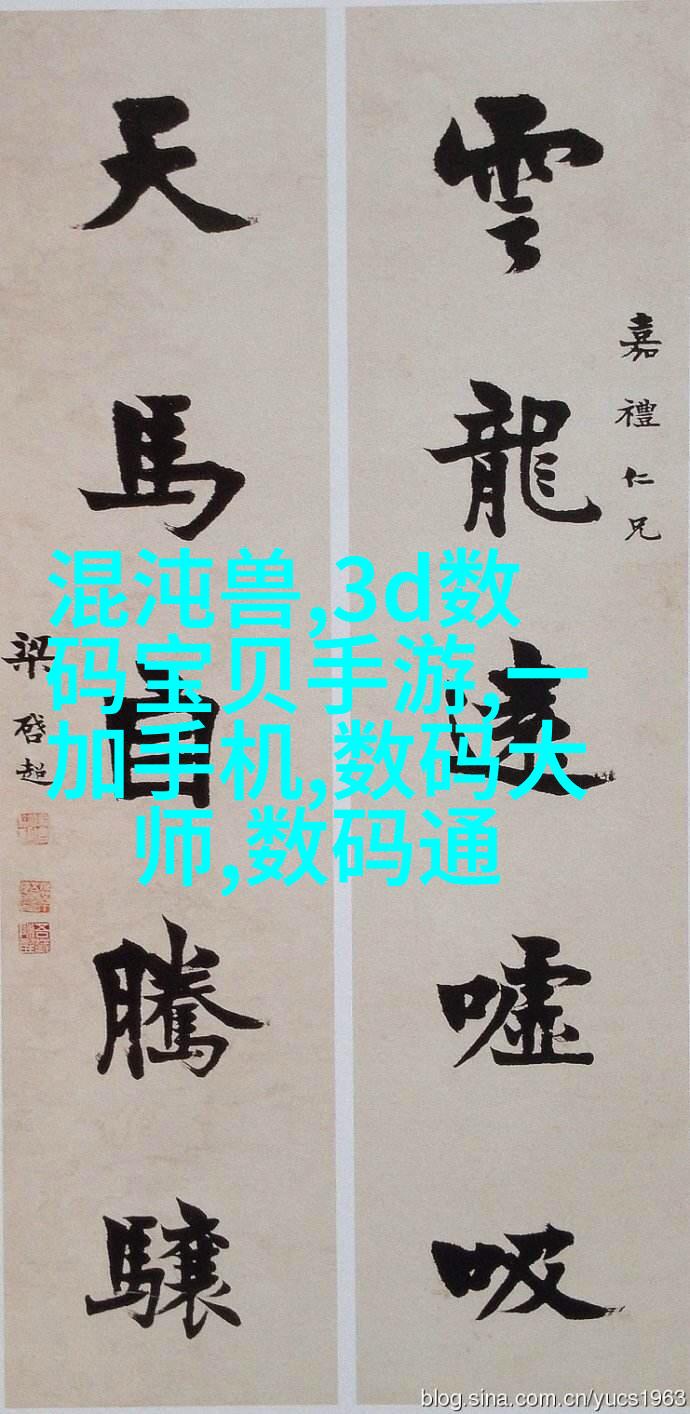 雲龍遠噓吸
嘉禮仁兄
天馬自騰驤
梁啓超
混沌兽,3d数
码宝贝手游,一
加手机,数码大
师,数码通
blog.sina.com.cn/yucs1963